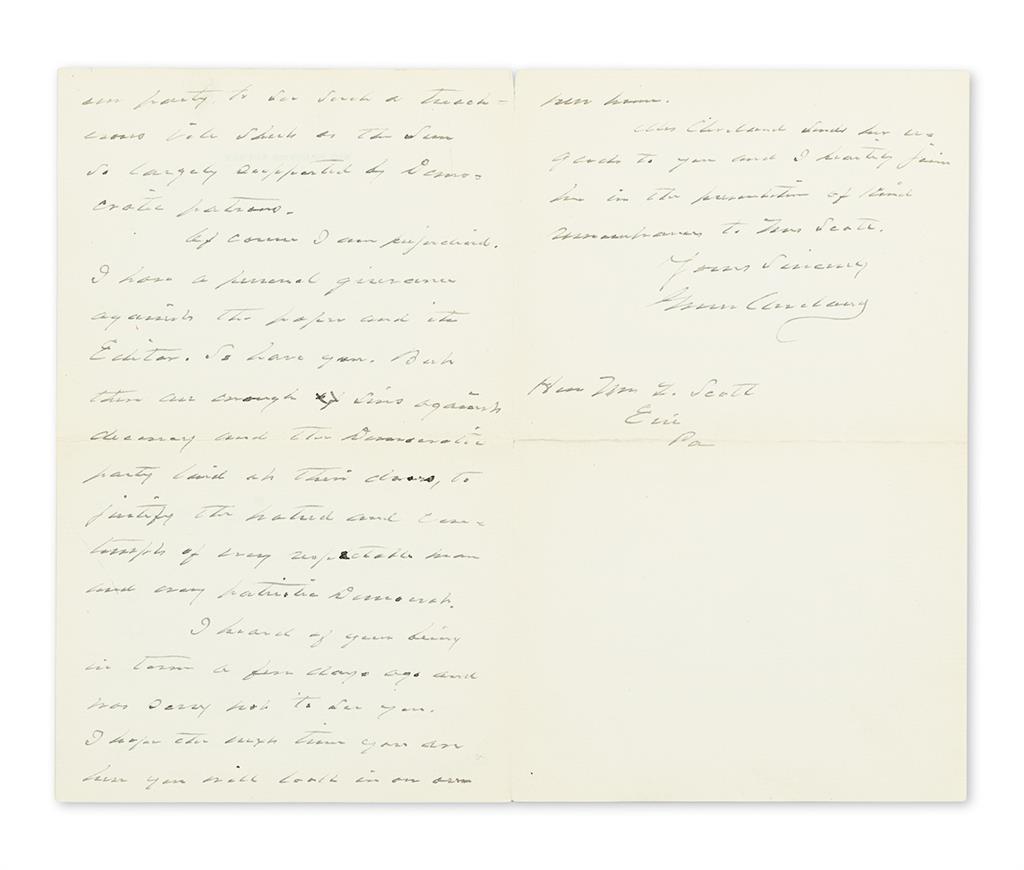 our party, to see such a treach-
erous vile sheet as the Sun
so largely supported by Demo-
cratic patrons.
Of course I am prejudiced.
I have a personal grievance
against the paper and its
Editor. So have you. But
there are enough of sins against
decency and the Democratic
party laid at their doors, to
justify the hatred and con-
tempt of every respectable man
and every patriotic Democrat.
I heard of your being
in town a few days ago and
was sorry not to see you.
I hope the next time you are
here you will look in on our
new home.
Mrs Cleveland sends her re-
gards to you and I heartily join
her in the presentation of kind
remembrances to Mrs Scott.
Yours Sincerely
Grover Cleveland
Hon Wm L. Scott
Erie
Pa